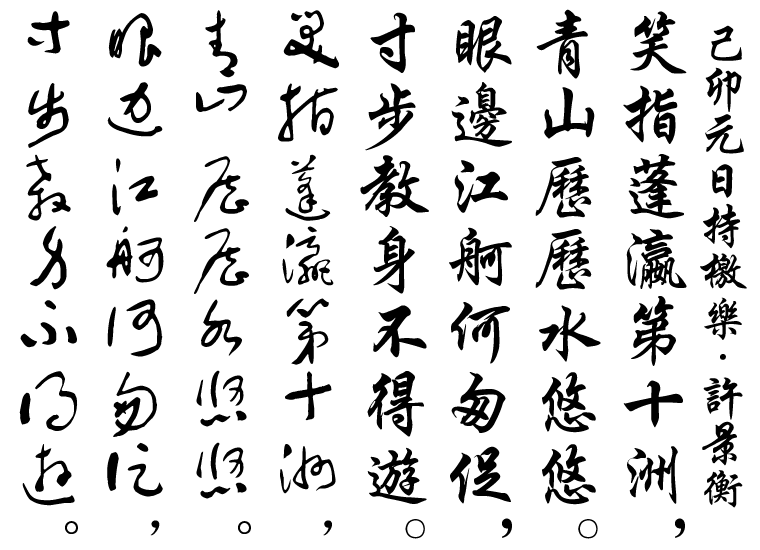 己卯元日持檄樂・許景衡
笑指蓬瀛第十洲，
青山歷歷水悠悠。
眼邊江舸何匆促，
寸步教身不得遊。
笑指蓬瀛第十洲，
青山歷歷水悠悠。
眼邊江舸何匆促，
寸步教身不得遊。